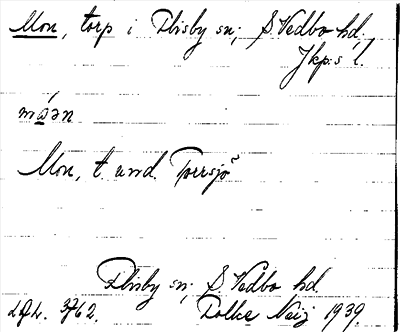 Mon, torp i Flisby sn; S. Vedbo hd.
Jkp:s l.
Mon, t. und. Torrsjö
Flisby sn; S. Vedbo hd
3762. Folke Neij 1939.